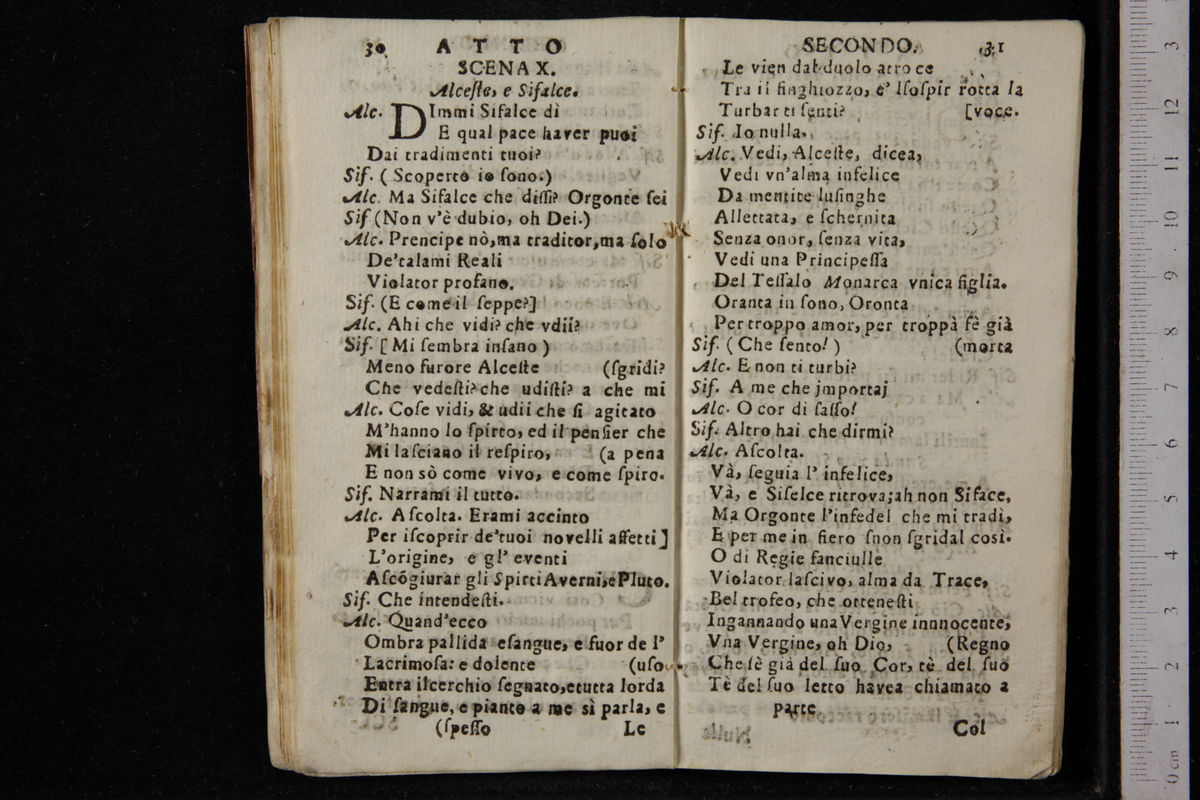 30 ATTO
SCENA X.
Alceste, e Sifalce.
Alc. DImmi Sifalce dì
E qual pace haver puoi
Dai tradimenti tuoi?
Sif. ( Scoperto io sono.)
Alc. Ma Sifalce che dissi? Orgonte sei
Sif (Non v'è dubio, oh Dei.)
Alc. Prencipe nò, ma traditor, ma solo
De' talami Reali
Violator profano.
Sif. (E come il seppe?]
Alc. Ahi che vidi? che vdii?
Sif. [ Mi sembra insano )
Meno furore Alceste (sgridi?
Che vedesti? che udisti? a che mi
Alc. Cose vidi, & udii che si agitato
M'hanno lo spirto, ed il pensier che
Mi lasciano il respiro, (a pena
E non sò come vivo, e come spiro.
Sif. Narrami il tutto.
Alc. Ascolta. Erami accinto
Per iscoprir de' tuoi novelli affetti]
L'origine, e gl' eventi
Ascõgiurar gli Spirti Averni, e Pluto.
Sif. Che intendesti.
Alc. Quand'ecco
Ombra pallida esangue, e fuor de l'
Lacrimosa: e dolente (uso
Entra il cerchio segnato, e tutta lorda
Di sangue, e pianto a me sì parla, e
(spesso Le
SECONDO. 31
Le vien dal duolo atroce
Tra il singhiozzo, e' lsospir rotta la
Turbar ti senti? [voce.
Sif. Io nulla.
Alc. Vedi, Alceste, dicea,
Vedi vn'alma infelice
Da mentite lusinghe
Allettata, e schernita
Senza onor, senza vita,
Vedi una Principessa
Del Tessalo Monarca vnica figlia.
Oranta in sono, Oronta
Per troppo amor, per troppà fè già
Sif. ( Che sento! ) (morta
Alc. E non ti turbi?
Sif. A me che jmportaj
Alc. O cor di sasso!
Sif. Altro hai che dirmi?
Alc. Ascolta.
Và, seguia l' infelice,
Và, e Sifelce ritrova; ah non Siface,
Ma Orgonte l'infedel che mi tradì,
E per me in fiero snon sgridal così.
O di Regie fanciulle
Violator lascivo, alma da Trace,
Bel trofeo, che ottenesti
Ingannando una Vergine innnocente,
Vna Vergine, oh Dio, (Regno
Che sè già del suo Cor, tè del suo
Tè del suo letto havea chiamato a
parte
Col